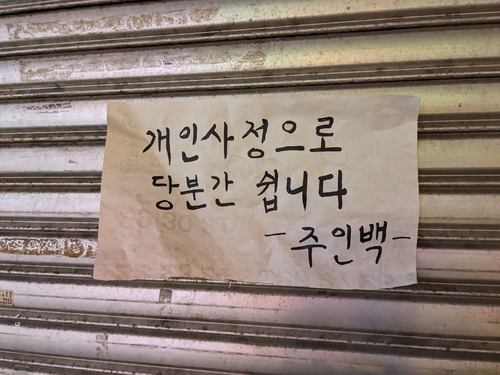 개인사정으로
당분간 쉽니다
- 주인백 -